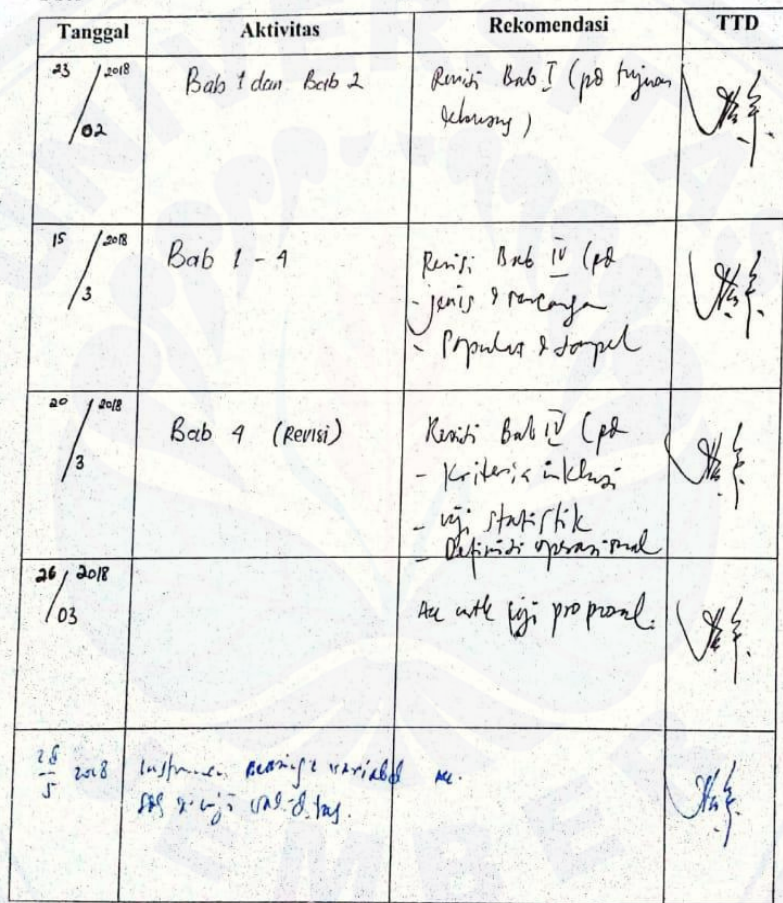 Tanggal Aktivitas Rekomendasi TTD
23/02 2018 Bab 1 dan Bab 2 Revisi Bab I (pd tujuan
khusus)
15/3 2018 Bab 1 - 4 Revisi Bab IV (pd
- jenis & rancangan
- Populasi & sampel
20/3 2018 Bab 4 (Revisi) Revisi Bab IV (pd
- Kriteria inklusi
- uji statistik
- Definisi operasional
26/03 2018 Acc untk uji proposal.
28/5 2018 Instrumen variabel acc.
uji validitas.
UNIVERSITAS
JEMBER